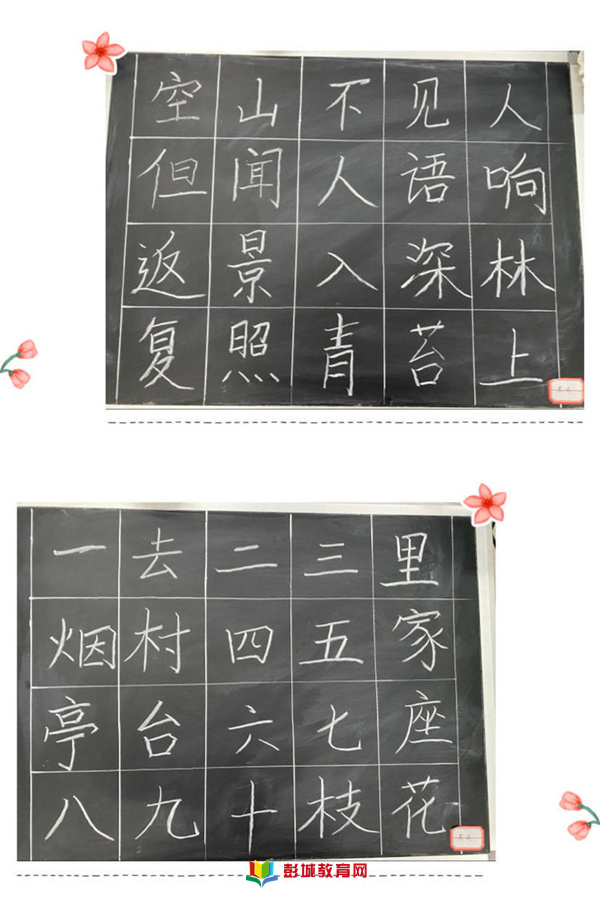 空山不见人
但闻人语响
返景入深林
复照青苔上
一去二三里
烟村四五家
亭台六七座
八九十枝花
彭城教育网